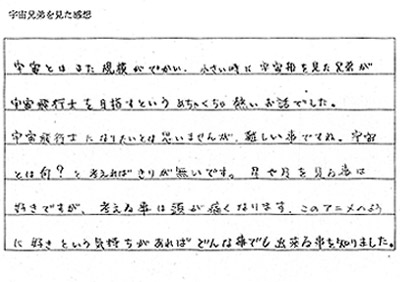 宇宙兄弟を見た感想
宇宙とはまた規模がでかい、小さい時に宇宙船を見た兄弟が
宇宙飛行士を目指すというめちゃくちゃ熱いお話でした。
宇宙飛行士になりたいとは思いませんが、難しい事ですね。宇宙
とは何?と考えればきりが無いです。星や月を見る事は
好きですが、考える事は頭が痛くなります。このアニメへよう
に好きという気持ちがあればどんな事でも出来る事を知りました。